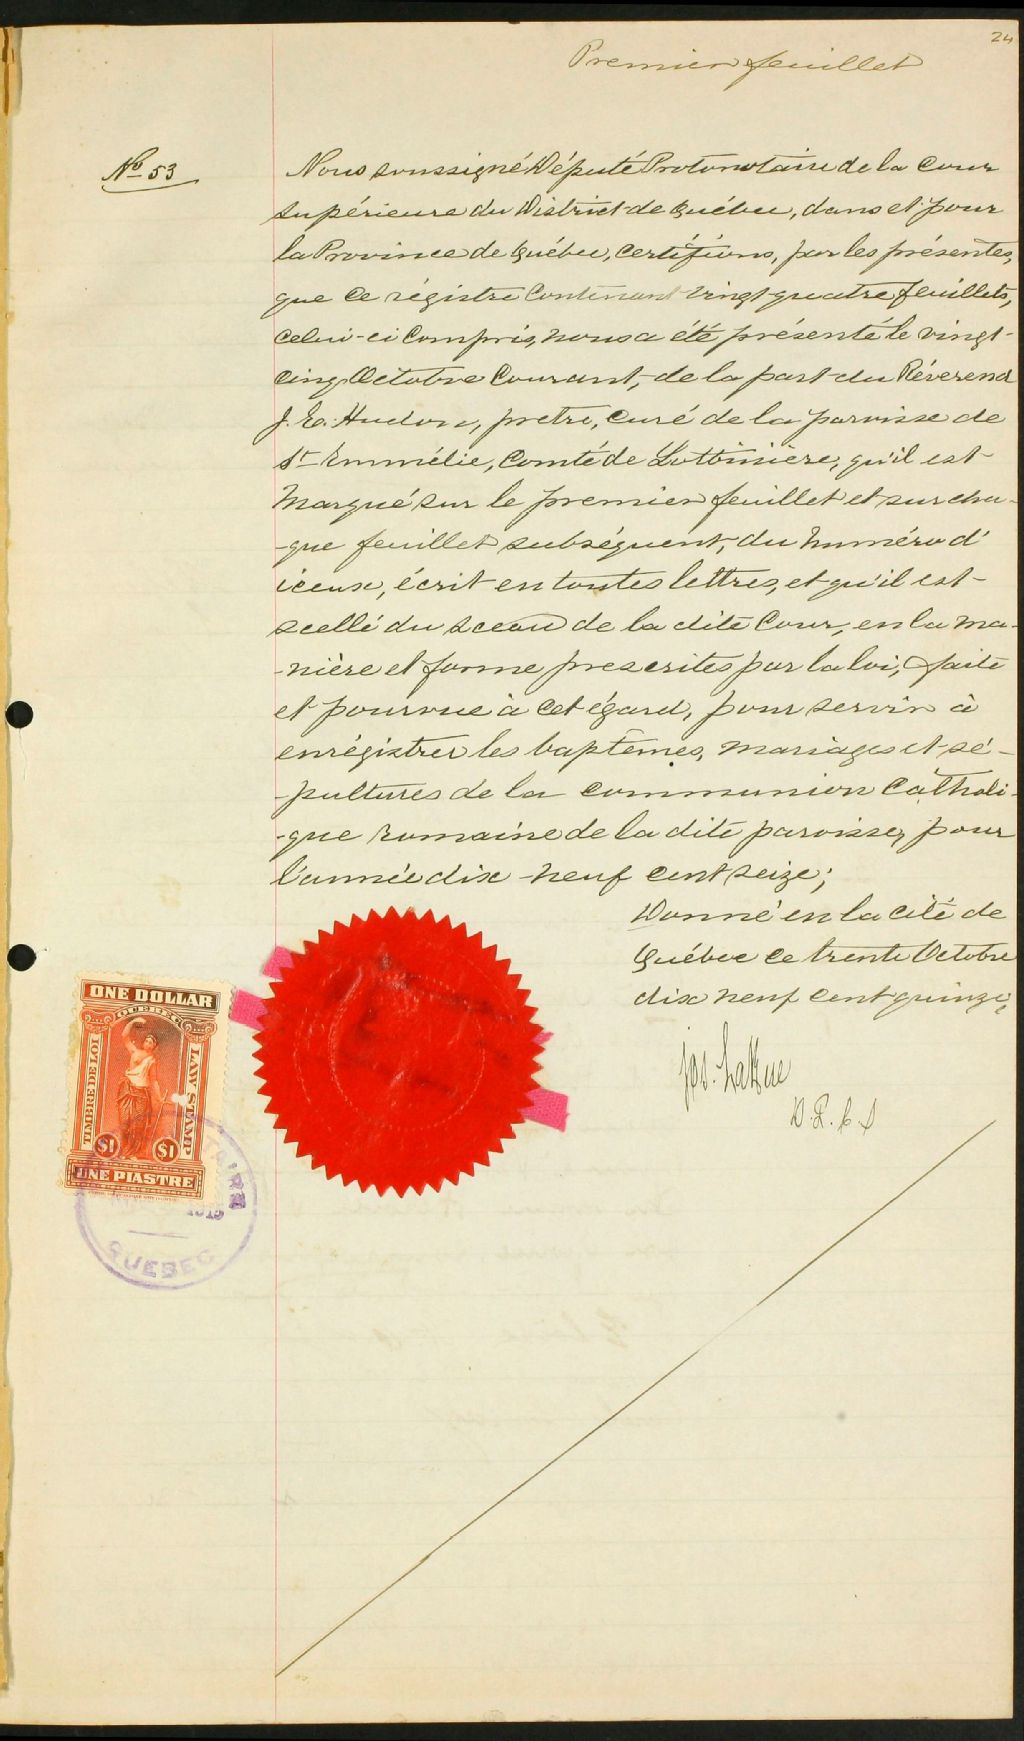 24
Premier feuillet
No 53
Nous soussigné Député Protonotaire de la Cour
supérieure du District de Québec, dans et pour
la Province de Québec, certifions, par les présentes,
que ce régistre contenant vingt quatre feuillets,
celui-ci compris, nous a été présenté le vingt-
cinq Octobre Courant, de la part du Réverend
J. E. Hudon, pretre, curé de la paroisse de
St Emmélie, Comté de Lotbinière, qu'il est
Marqué sur le premier feuillet et sur cha-
-que feuillet subséquent, du Numéro d'
iceux, écrit en toutes lettres, et qu'il est
scellé du sceau de la dite Cour, en la ma-
-nière et forme prescrites par la loi, faite
et pourvue à cet égard, pour servir à
enrégistrer les baptêmes, mariages et sé-
-pultures de la communion Catholi-
-que romaine de la dite paroisse, pour
l'année dix neuf cent seize;
Donné en la cité de
Québec ce trente Octobre
dix neuf cent quinze,
Jos. LaRue
D. P. C. S
ONE DOLLAR
QUEBEC
TIMBRE DE LOI
LAW STAMP
$1 $1
UNE PIASTRE
QUEBEC